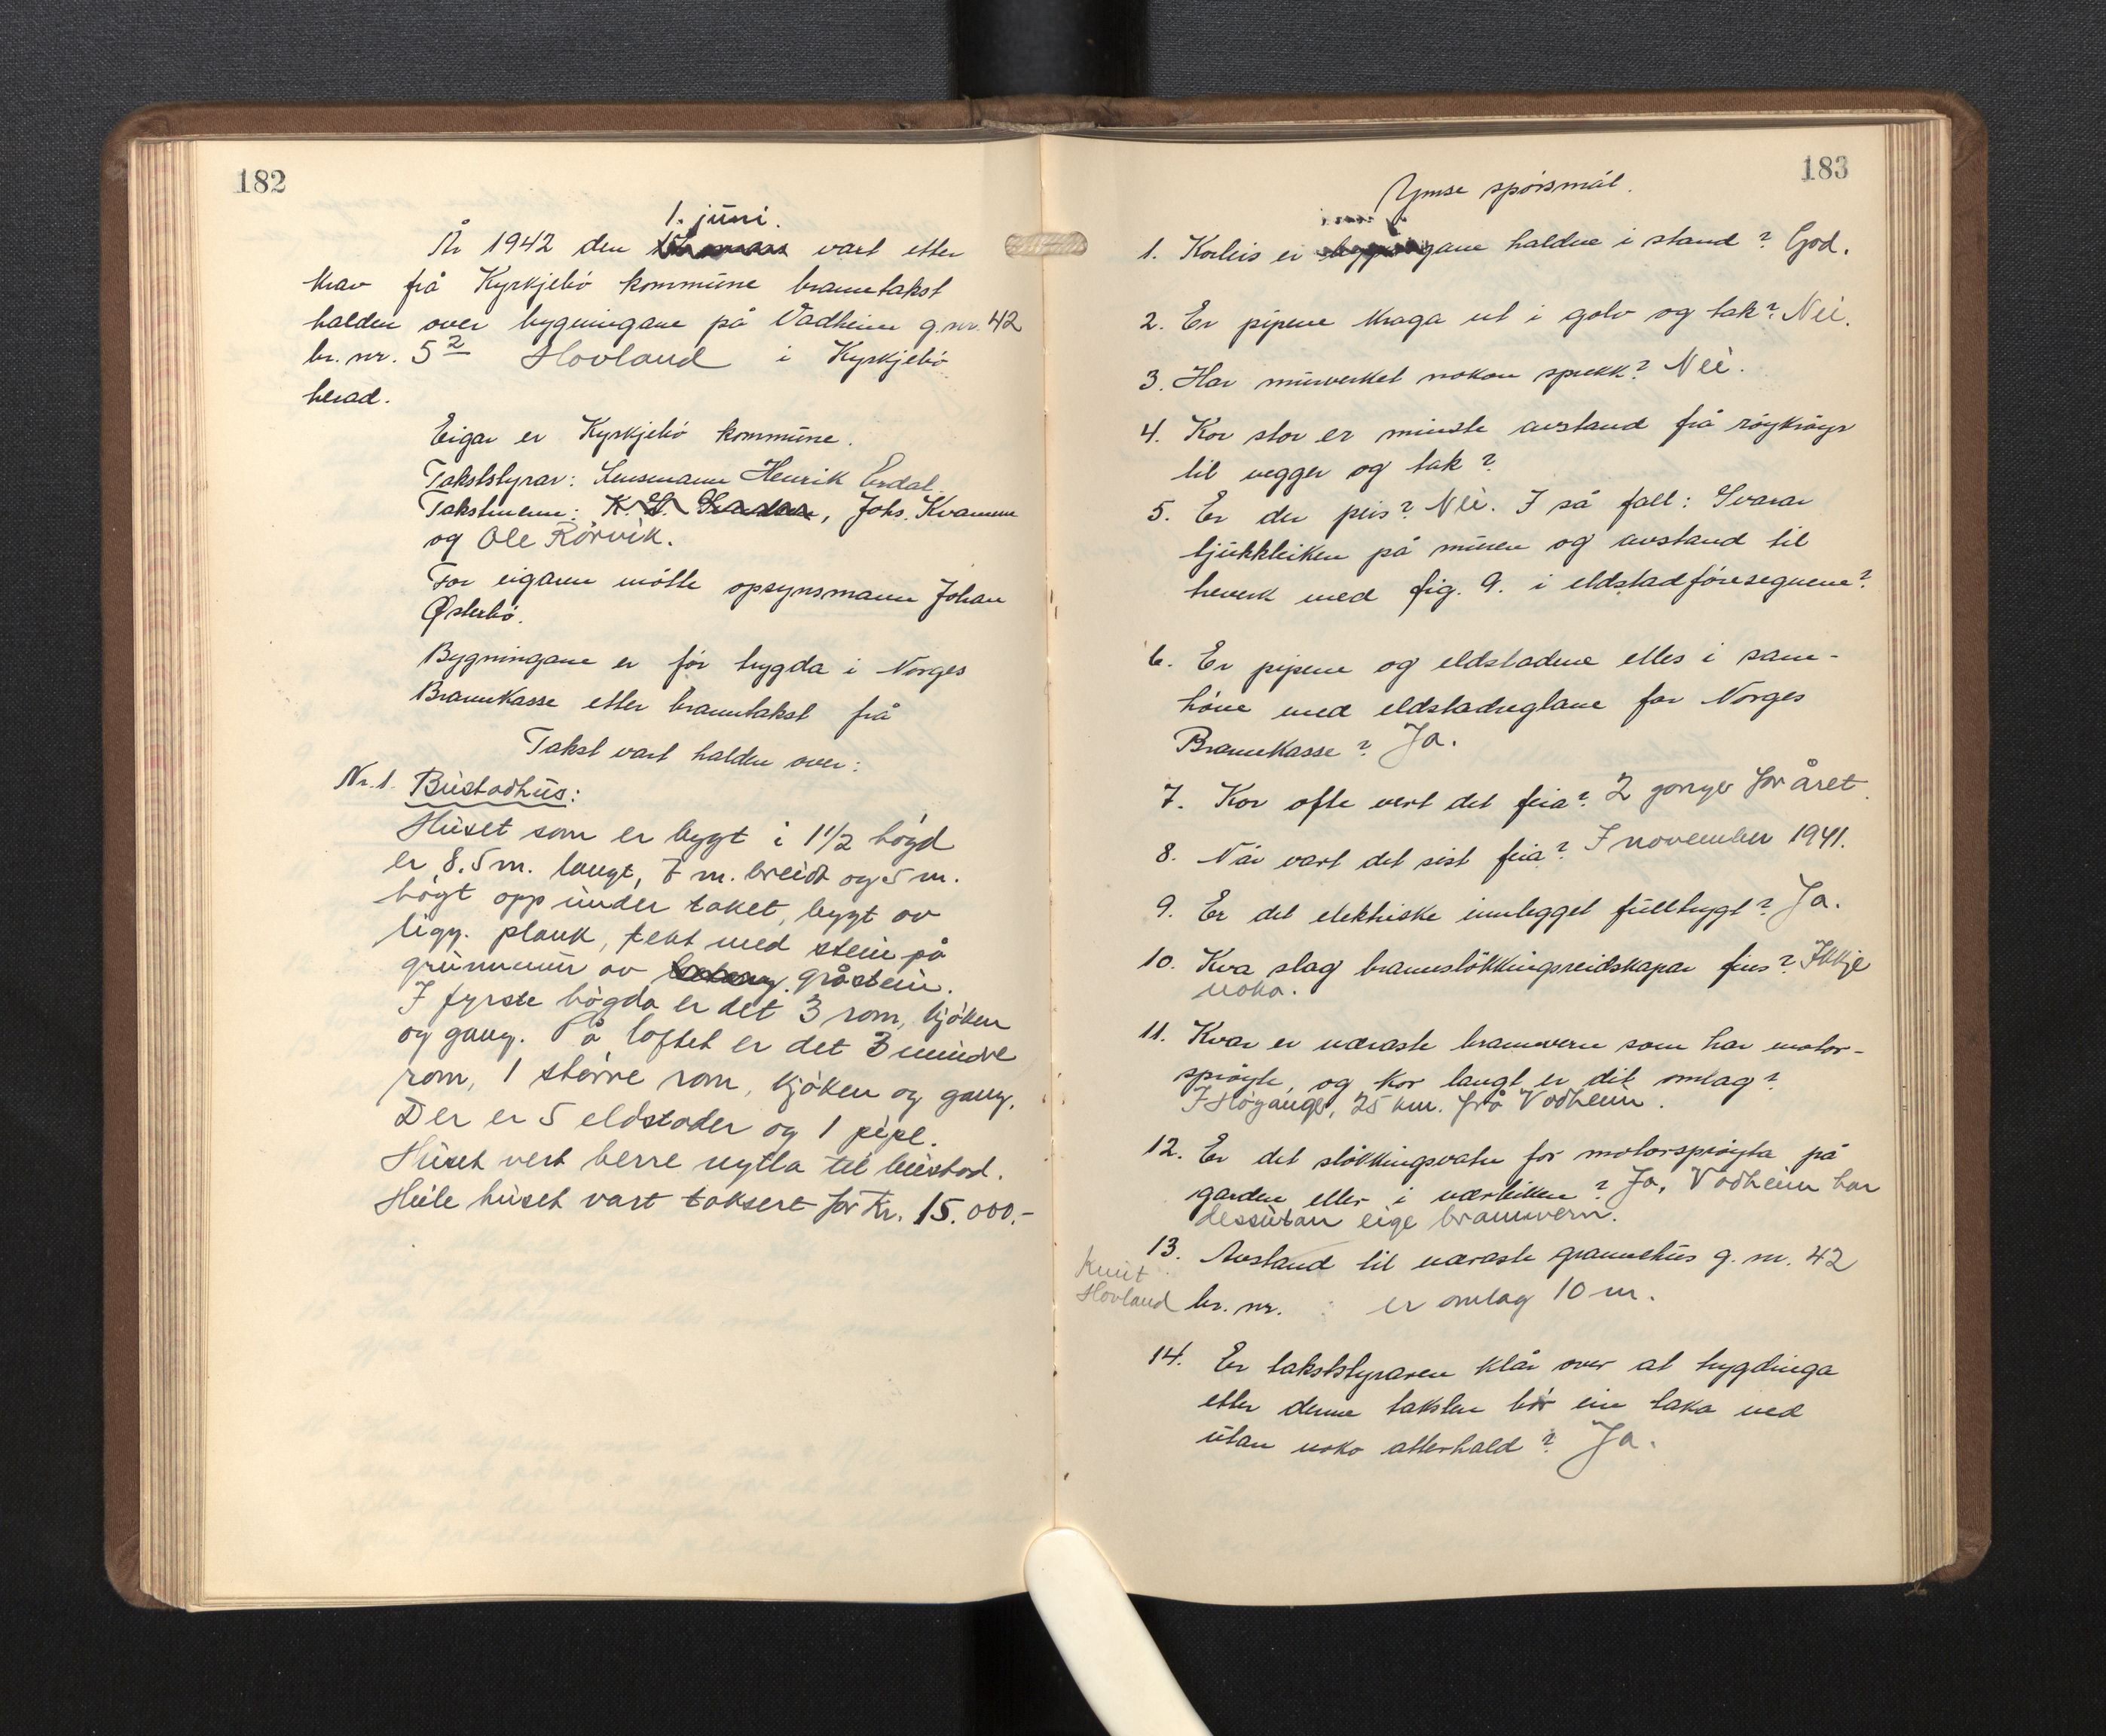 182
1. juni.
År 1942 den vart etter
krav frå Kyrkjebö kommune branntakst
halden over bygningane på Vadheim g.nr. 42
br. nr. 52 Hovland i Kyrkjebö
herad.
Eigar er Kyrkjebö kommune.
Takststyrar: Lensmann Henrik Erdal.
Takstmenn: K. H. , Johs. Kvamme
og Ole Rörvik.
For eigaren mötte opsynsmann Johan
Østerbö.
Bygningane er för trygda i Norges
Brannkasse etter branntakst frå
Takst vart halden over:
Nr. 1. Bustadhus:
Huset som er bygt i 1 1/2 högd
er 8.5 m. langt, 7 m. breidt og 5 m.
högt opp under taket, bygt av
ligg. plank, tekt med stein på
grunnmur av gråstein.
I fyrste högda er det 3 rom, kjöken
og gang. På loftet er det 3 mindre
rom, 1 större rom, kjöken og gang.
Der er 5 eldstader og 1 pipe.
Huset vert berre nytta til bustad.
Heile huset vart taksert for kr. 15.000.-
183
Ymse spörsmål.
1. Korleis er bygningane haldne i stand? God.
2. Er pipene kraga ut i golv og tak? Nei.
3. Har murverket nokon sprekk? Nei.
4. Kor stor er minste avstand frå röykröyr
til vegger og tak?
5. Er der peis? Nei. I så fall: Svarar
tjukkleiken på muren og avstand til
treverk med fig. 9. i eldstadföresegnene?
6. Er pipene og eldstadene elles i sam-
höve med eldstadreglane for Norges
Brannkasse? Ja.
7. Kor ofte vert det feia? 2 gonger for året.
8. Når vart det sist feia? I november 1941.
9. Er det elektriske innlegget fulltrygt? Ja.
10. Kva slag brannslökkingsreidskapar fins? Ikkje
noko.
11. Kvar er næraste brannvern som har motor-
spröyte, og kor langt er dit omlag?
I Höyanger, 25 km. frå Vadheim.
12. Er det slökkingsvatn for motorspröyta på
garden eller i nærleiken? Ja, Vadheim har
dessutan eige brannvern.
13. Avstand til næraste grannehus g. nr. 42
Knut
Hovland br. nr. : er omlag 10 m.
14. Er takststyraren klår over at trygdinga
etter denne taksten bör ein taka ved
utan noko atterhald? Ja.